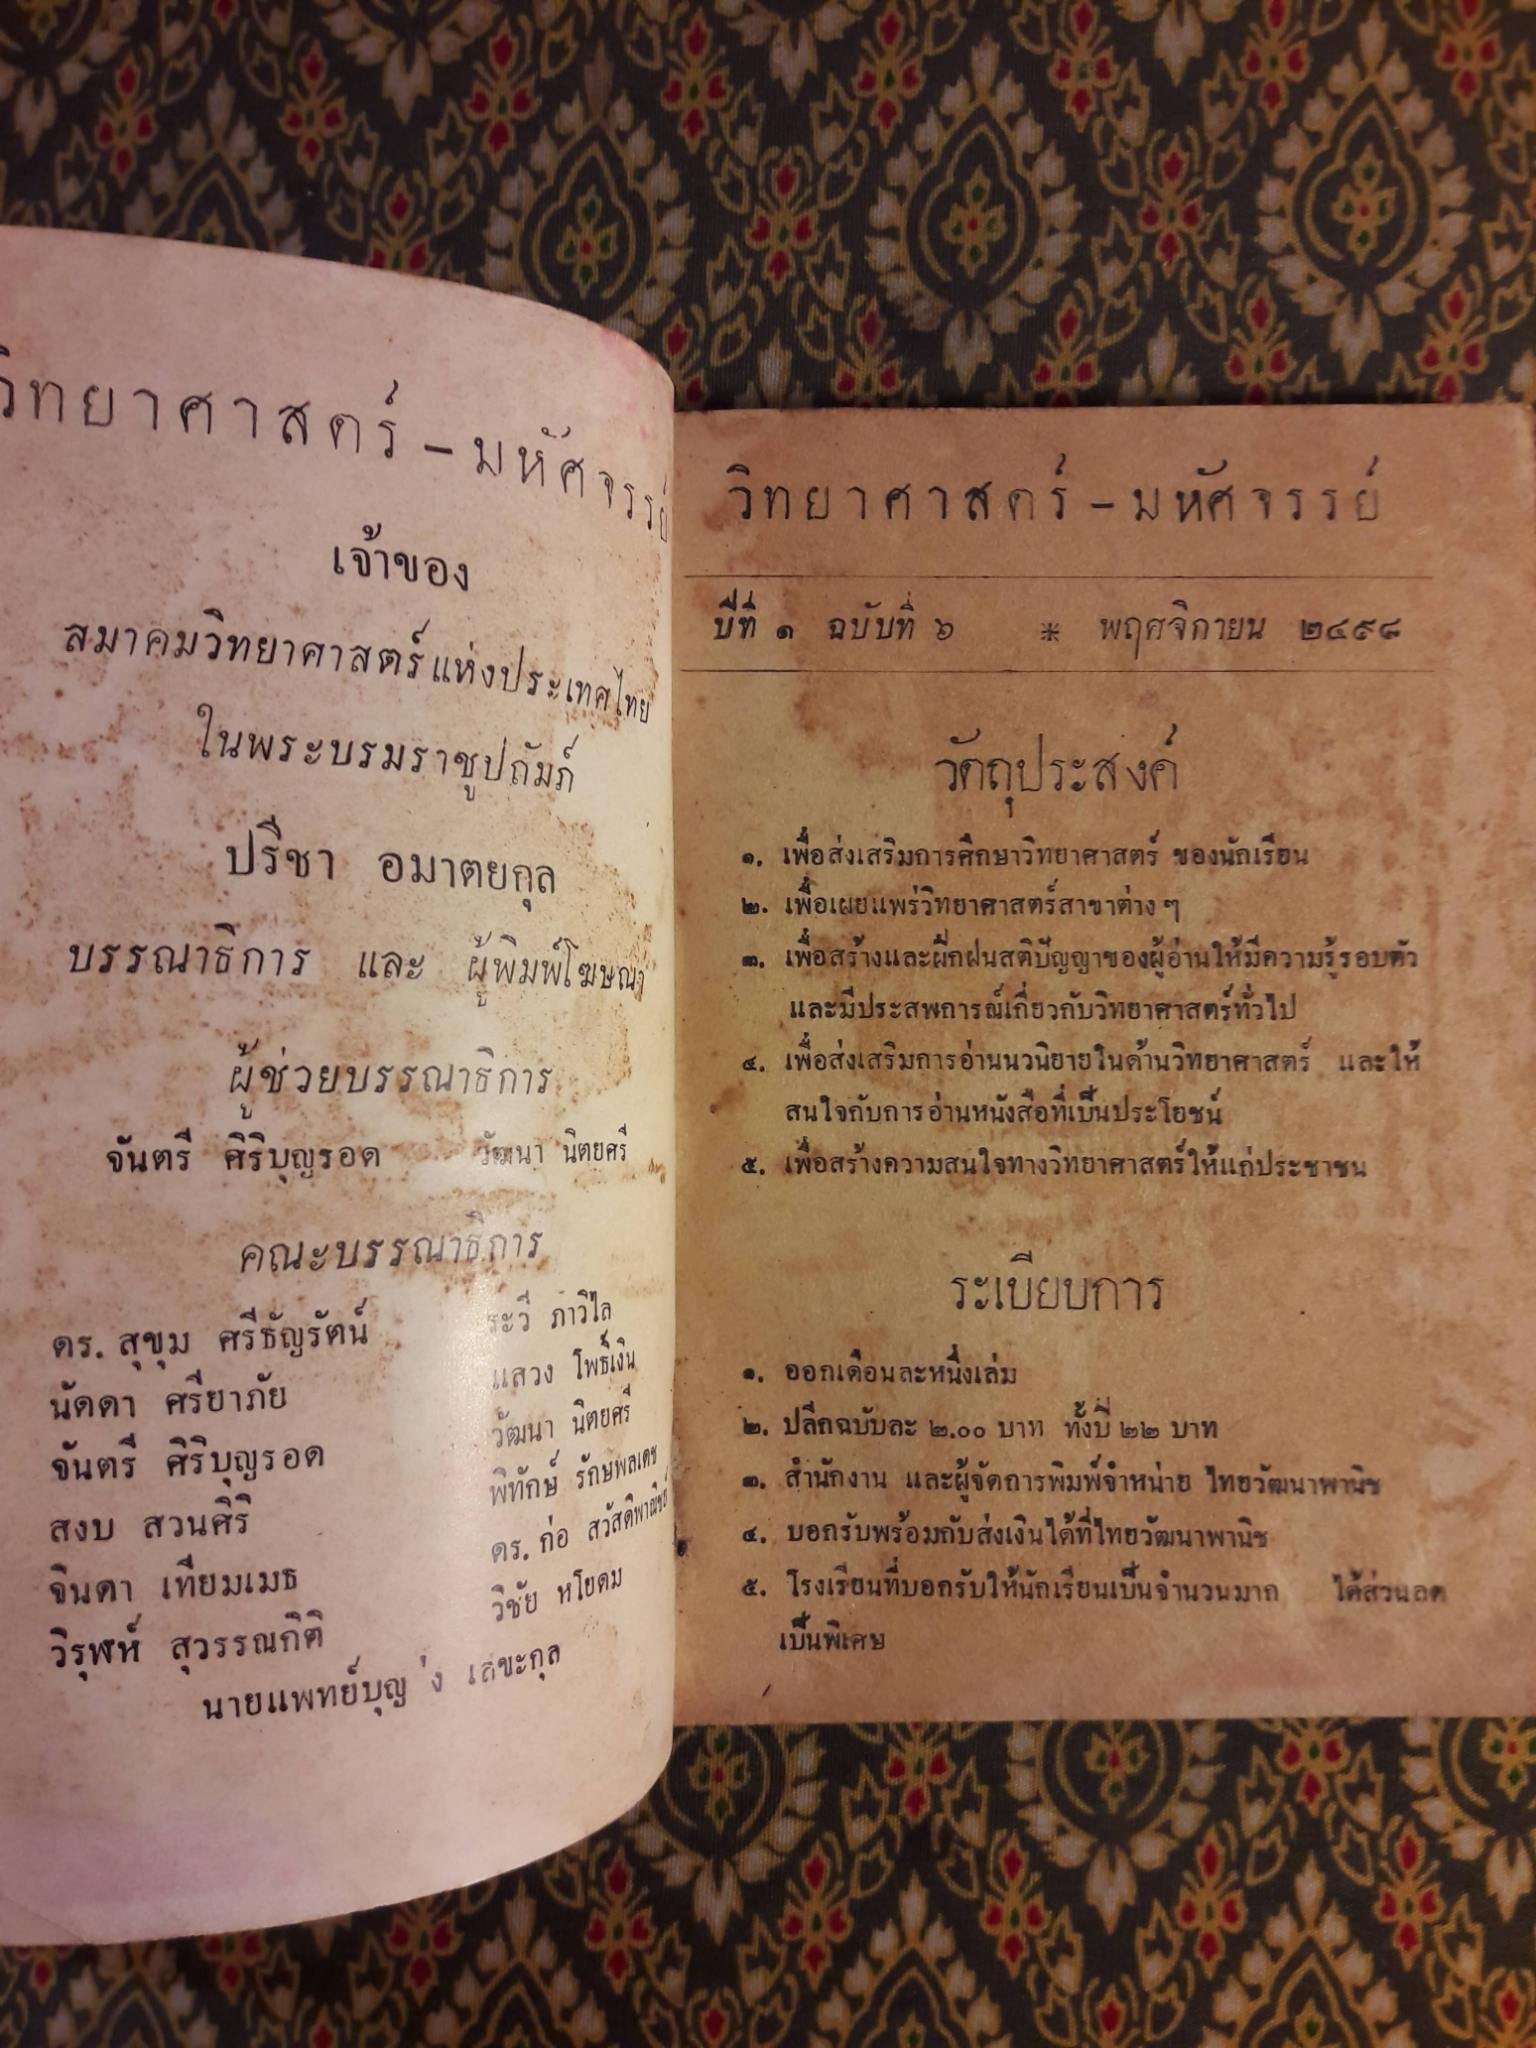 วิทยาศาสตร์ - มหัศจรรย์
เจ้าของ
สมาคมวิทยาศาสตร์แห่งประเทศไทย
ในพระบรมราชูปถัมภ์
ปรีชา อมาตยกุล
บรรณาธิการ และ ผู้พิมพ์โฆษณา
ผู้ช่วยบรรณาธิการ
จันตรี ศิริบุญรอด วัฒนา นิตยศรี
คณะบรรณาธิการ
ดร. สุขุม ศรีธัญรัตน์ ระวี ภาวิไล
นัดดา ศรียาภัย แสวง โพธิ์เงิน
จันตรี ศิริบุญรอด วัฒนา นิตยศรี
สงบ สวนศิริ พิทักษ์ รักษพลเดช
จินดา เทียมเมธ ดร. ก่อ สวัสดิพาณิชย์
วิรุฬห์ สุวรรณกิติ วิชัย หโยดม
นายแพทย์บุญ ่ง เลขะกุล
วิทยาศาสตร์ - มหัศจรรย์
ปีที่ ๑ ฉบับที่ ๖ * พฤศจิกายน ๒๔๙๘
วัตถุประสงค์
๑. เพื่อส่งเสริมการศึกษาวิทยาศาสตร์ ของนักเรียน
๒. เพื่อเผยแพร่วิทยาศาสตร์สาขาต่างๆ
๓. เพื่อสร้างและฝึกฝนสติปัญญาของผู้อ่านให้มีความรู้รอบตัว
และมีประสพการณ์เกี่ยวกับวิทยาศาสตร์ทั่วไป
๔. เพื่อส่งเสริมการอ่านนวนิยายในด้านวิทยาศาสตร์ และให้
สนใจกับการอ่านหนังสือที่เป็นประโยชน์
๕. เพื่อสร้างความสนใจทางวิทยาศาสตร์ให้แก่ประชาชน
ระเบียบการ
๑. ออกเดือนละหนึ่งเล่ม
๒. ปลีกฉบับละ ๒.๐๐ บาท ทั้งปี ๒๒ บาท
๓. สำนักงาน และผู้จัดการพิมพ์จำหน่าย ไทยวัฒนาพานิช
๔. บอกรับพร้อมกับส่งเงินได้ที่ไทยวัฒนาพานิช
๕. โรงเรียนที่บอกรับให้นักเรียนเป็นจำนวนมาก ได้ส่วนลด
เป็นพิเศษ